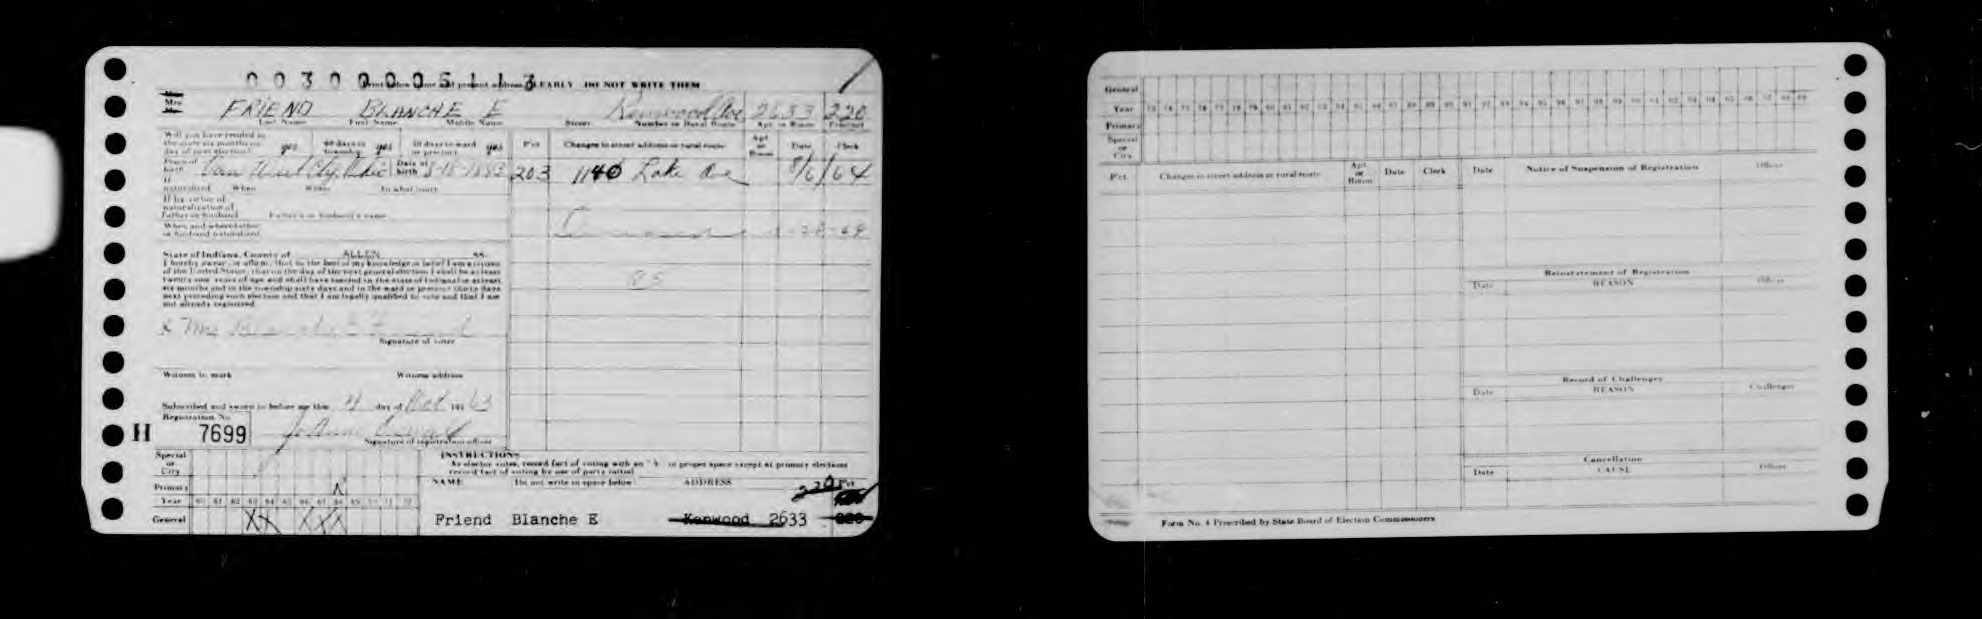 00300005113
Print CLEARLY DO NOT WRITE THEM
Mrs FRIEND BLANCHE E Kenwood Ave 2633 220
Last Name First Name Middle Name Street Number or Rural Route Apt. or Room Precinct
Will you have resided in the state six months on day of next election? yes 60 days in township yes 30 days in ward or precinct yes Pct Changes in street address or rural route Apt or Room Date Clerk
Place of birth Van Wert Cty, Ohio Date of birth 1883 203 1140 Lake Ave 8/6/64
If naturalized When Where In what court
If by virtue of naturalization of Father or husband Father's or husband's name
When and where father or husband naturalized
State of Indiana, County of ALLEN SS.
I hereby swear, or affirm, that to the best of my knowledge or belief I am a citizen
of the United States; that on the day of the next general election I shall be at least
twenty-one years of age and shall have resided in the state of Indiana at least
six months and in the township sixty days and in the ward or precinct thirty days
next preceding such election and that I am legally qualified to vote and that I am
not already registered.
85
x Mrs Blanche E Friend
Signature of voter
Witness to mark Witness address
Subscribed and sworn to before me this day of 19 63
Registration No.
H 7699
Signature of registration officer
Special or City
Primary
Year 60 61 62 63 64 65 66 67 68 69 70 71 72
General
INSTRUCTIONS
As elector votes, record fact of voting with an "X" in proper space except at primary elections
record fact of voting by use of party initial
NAME (Do not write in space below) ADDRESS Pct
220
Friend Blanche E Kenwood 2633 220
General
Year 73 74 75 76 77 78 79 80 81 82 83 84 85 86 87 88 89 90 91 92 93 94 95 96 97 98 99 00 01 02 03 04 05 06 07 08 09
Primary
Special or City
Pct. Changes in street address or rural route Apt. or Room Date Clerk Date Notice of Suspension of Registration Officer
Reinstatement of Registration
Date REASON Officer
Record of Challenges
Date REASON Challenger
Cancellation
Date CAUSE Officer
Form No. 4 Prescribed by State Board of Election Commissioners